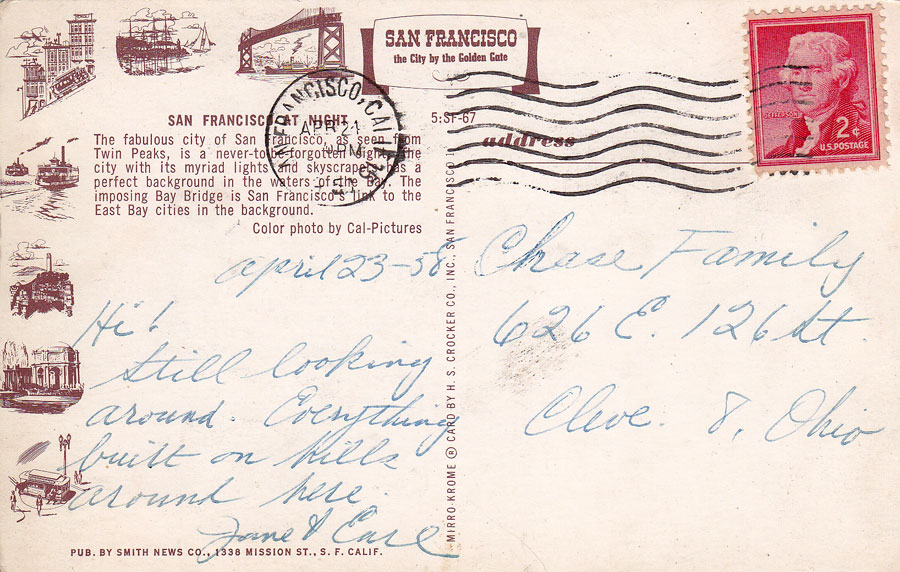 SAN FRANCISCO
the City by the Golden Gate
SAN FRANCISCO, CALIF.
APR 21
PM
SAN FRANCISCO AT NIGHT
The fabulous city of San Francisco, as seen from
Twin Peaks, is a never-to-be-forgotten sight. The
city with its myriad lights and skyscrapers has a
perfect background in the waters of the Bay. The
imposing Bay Bridge is San Francisco's link to the
East Bay cities in the background.
Color photo by Cal-Pictures
5:SF-67
address
JEFFERSON
2¢
U.S. POSTAGE
april 23-58
Hi!
Still looking
around. Everything
built on hills
around here.
Jane & Earl
PUB. BY SMITH NEWS CO., 1338 MISSION ST., S. F. CALIF.
MIRRO-KROME ® CARD BY H. S. CROCKER CO., INC., SAN FRANCISCO
Chase Family
626 E. 126 St.
Cleve. 8, Ohio